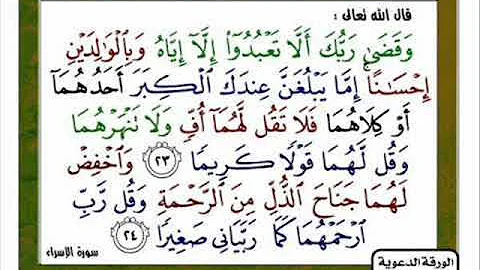 قال الله تعالى :
وَقَضَىٰ رَبُّكَ أَلَّا تَعْبُدُوٓا۟ إِلَّآ إِيَّاهُ وَبِٱلْوَٰلِدَيْنِ
إِحْسَـٰنًا ۚ إِمَّا يَبْلُغَنَّ عِندَكَ ٱلْكِبَرَ أَحَدُهُمَآ
أَوْ كِلَاهُمَا فَلَا تَقُل لَّهُمَآ أُفٍّ وَلَا تَنْهَرْهُمَا
وَقُل لَّهُمَا قَوْلًا كَرِيمًا ٢٣ وَٱخْفِضْ
لَهُمَا جَنَاحَ ٱلذُّلِّ مِنَ ٱلرَّحْمَةِ وَقُل رَّبِّ
ٱرْحَمْهُمَا كَمَا رَبَّيَانِى صَغِيرًا ٢٤ سورة الإسراء
الورقة الدعوية